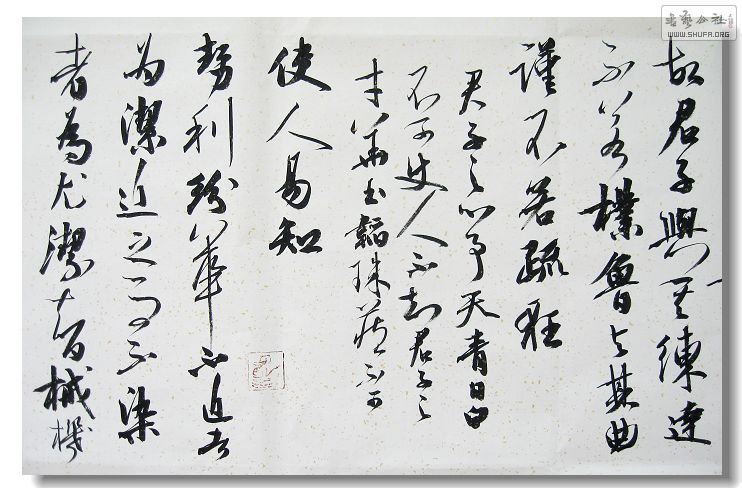 故君子與其練達
不若樸魯与其曲
謹不若疏狂
君子之心事天青日白
不可使人不知君子之
才華玉韞珠藏不可
使人易知
勢利紛華不近者
为潔近之而不染
者為尤潔智械機
书藝公社
WWW.SHUFA.ORG